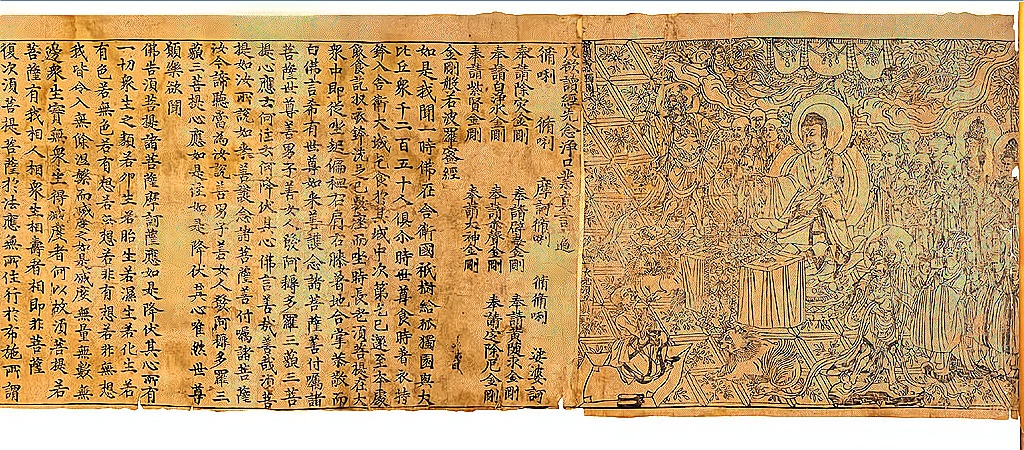 凡欲讀經先念淨口業真言一遍
脩唎 脩唎 摩訶脩唎 脩脩唎 娑婆訶
奉請除災金剛 奉請辟毒金剛 奉請黃隨求金剛
奉請白淨水金剛 奉請赤聲金剛 奉請定除厄金剛
奉請紫賢金剛 奉請大神金剛
金剛般若波羅蜜經
如是我聞一時佛在舍衛國祇樹給孤獨園與大
比丘衆千二百五十人俱尒時世尊食時著衣持
鉢入舍衛大城乞食於其城中次第乞已還至本處
飯食訖收衣鉢洗足已敷座而坐時長老須菩提在大
衆中即從坐起偏袒右肩右膝著地合掌恭敬而
白佛言希有世尊如來善護念諸菩薩善付囑諸
菩薩世尊善男子善女人發阿耨多羅三藐三菩
提心應云何住云何降伏其心佛言善哉善哉須菩
提如汝所說如來善護念諸菩薩善付囑諸菩薩
汝今諦聽當為汝說善男子善女人發阿耨多羅三
藐三菩提心應如是住如是降伏其心唯然世尊
願樂欲聞
佛告須菩提諸菩薩摩訶薩應如是降伏其心所有
一切衆生之類若卵生若胎生若濕生若化生若
有色若無色若有想若無想若非有想若非無想
我皆令入無餘涅槃而滅度之如是滅度無量無數無
邊衆生實無衆生得滅度者何以故須菩提若
菩薩有我相人相衆生相壽者相即非菩薩
復次須菩提菩薩於法應無所住行於布施所謂